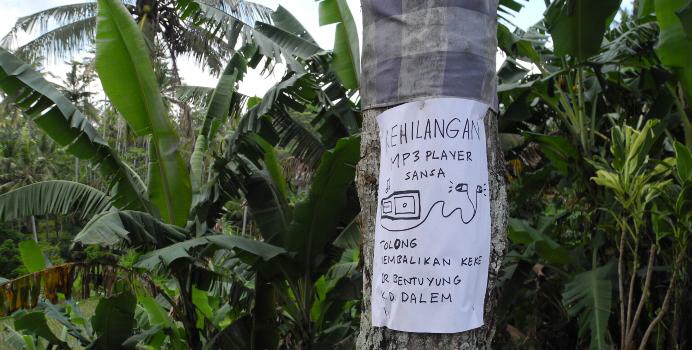 KEHILANGAN
MP3 PLAYER
SANSA
TOLONG
KEMBALIKAN KEKE
BR. BENTUYUNG
DALEM